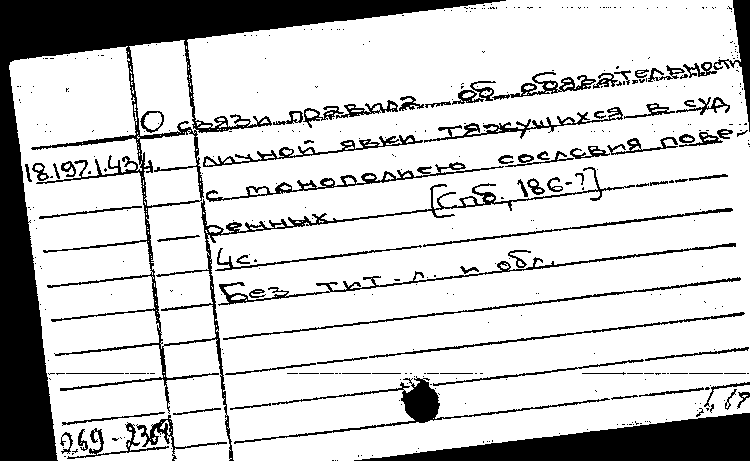 О связи правила об обязательности
18.197.1.434. личной явки тяжущихся в суд
с монополиею сословия пове-
ренных. [Спб., 186-?]
4с.
Без тит. л. и обл.
269-2369